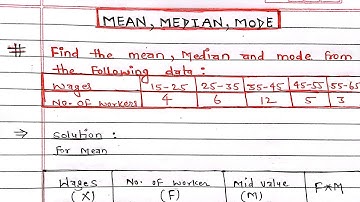 MEAN, MEDIAN, MODE
# Find the mean, Median and mode from
the Following data:
Wages 15-25 25-35 35-45 45-55 55-65
No. of workers 4 6 12 5 3
⇒ Solution:
For Mean
Wages No. of worker Mid value F×M
(X) (F) (M)